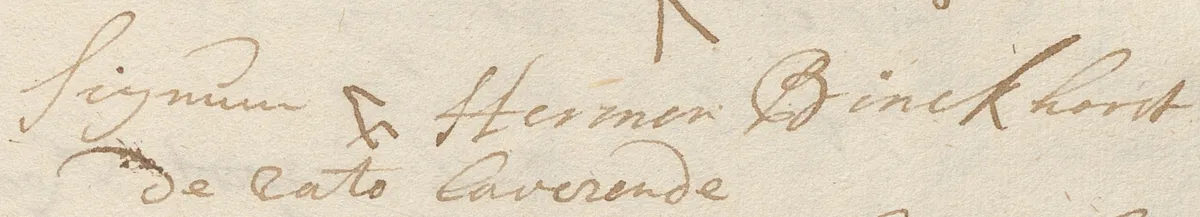 Signum Hermen Binckhorst
de rato Caverende